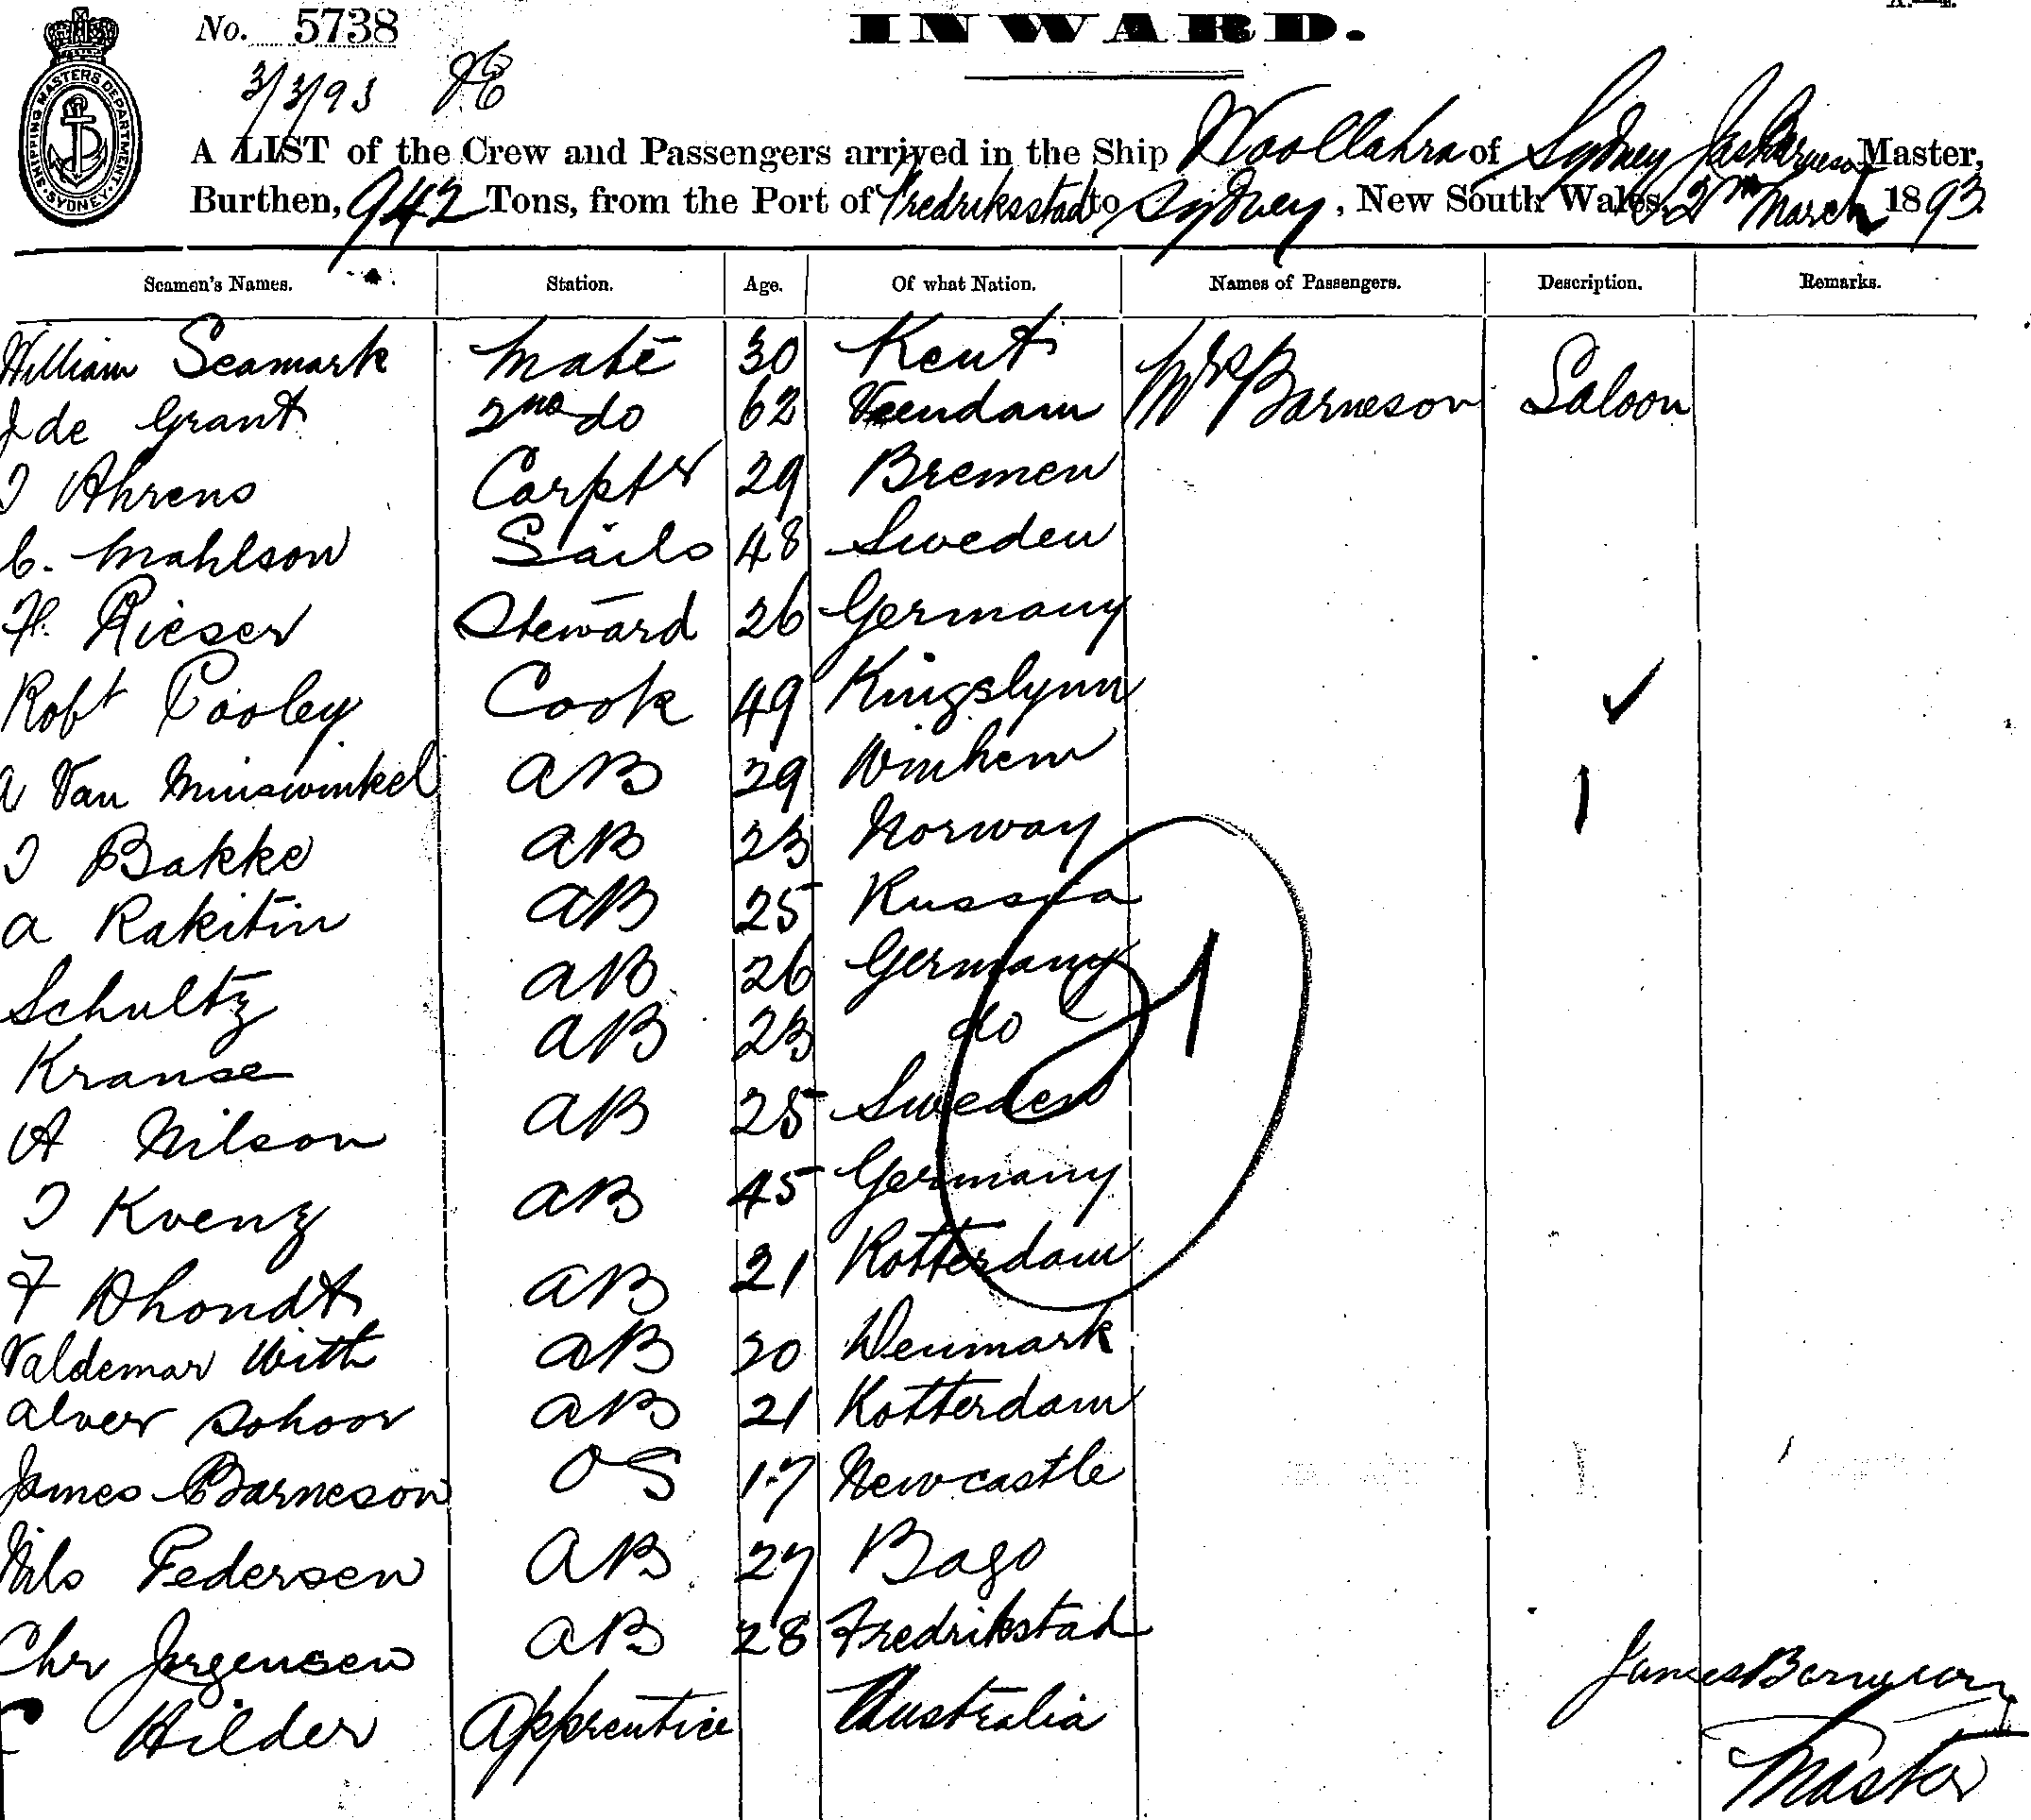 No. 5738
INWARD.
3/3/93
SHIPPING MASTERS DEPARTMENT. SYDNEY.
A LIST of the Crew and Passengers arrived in the Ship Woollahra of Sydney Jas Barneson Master,
Burthen, 942 Tons, from the Port of Fredriksstad to Sydney, New South Wales, 2nd March 1893.
Seamen's Names. Station. Age. Of what Nation. Names of Passengers. Description. Remarks.
William Seamark Mate 30 Kent Mrs Barneson Saloon
J de Grant 2nd do 62 Veendam
J Ahrens Carptr 29 Bremen
C. Mahlson Sails 48 Sweden
H. Rieser Steward 26 Germany
Robt Cooley Cook 49 Kingslynn
A Van Minswinkel AB 29 Winhem
J Bakke AB 23 Norway
A Rakitin AB 25 Russia
Schultz AB 26 Germany
Krause AB 23 do
21
A Nilson AB 25 Sweden
J Kvenz AB 45 Germany
F Dhondt AB 21 Rotterdam
Valdemar With AB 20 Denmark
Alver Schoor AB 21 Rotterdam
James Barneson OS 17 Newcastle
Nils Pedersen AB 27 Bago
Chr Jorgensen AB 28 Fredrikstad
Hilder Apprentice Australia
James Barneson
Master